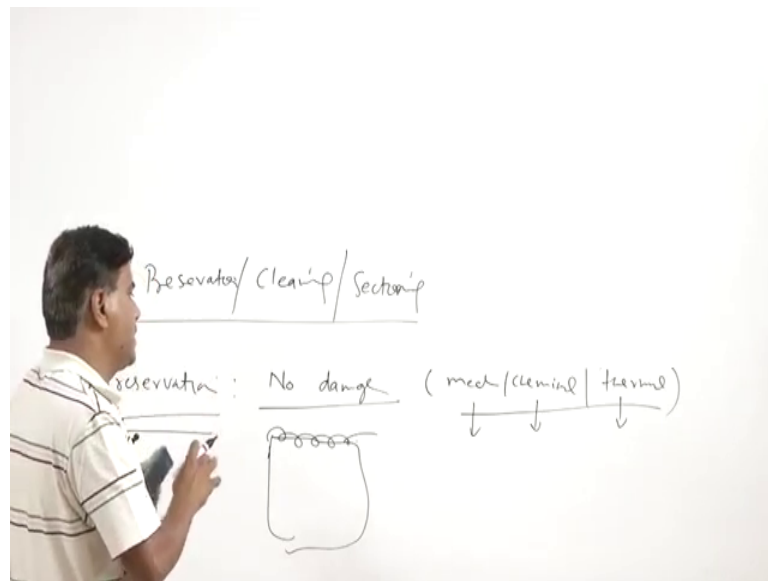 Preservation/ Cleaning/ Sectioning
reservation : No damage ( mech/chemical/ thermal)